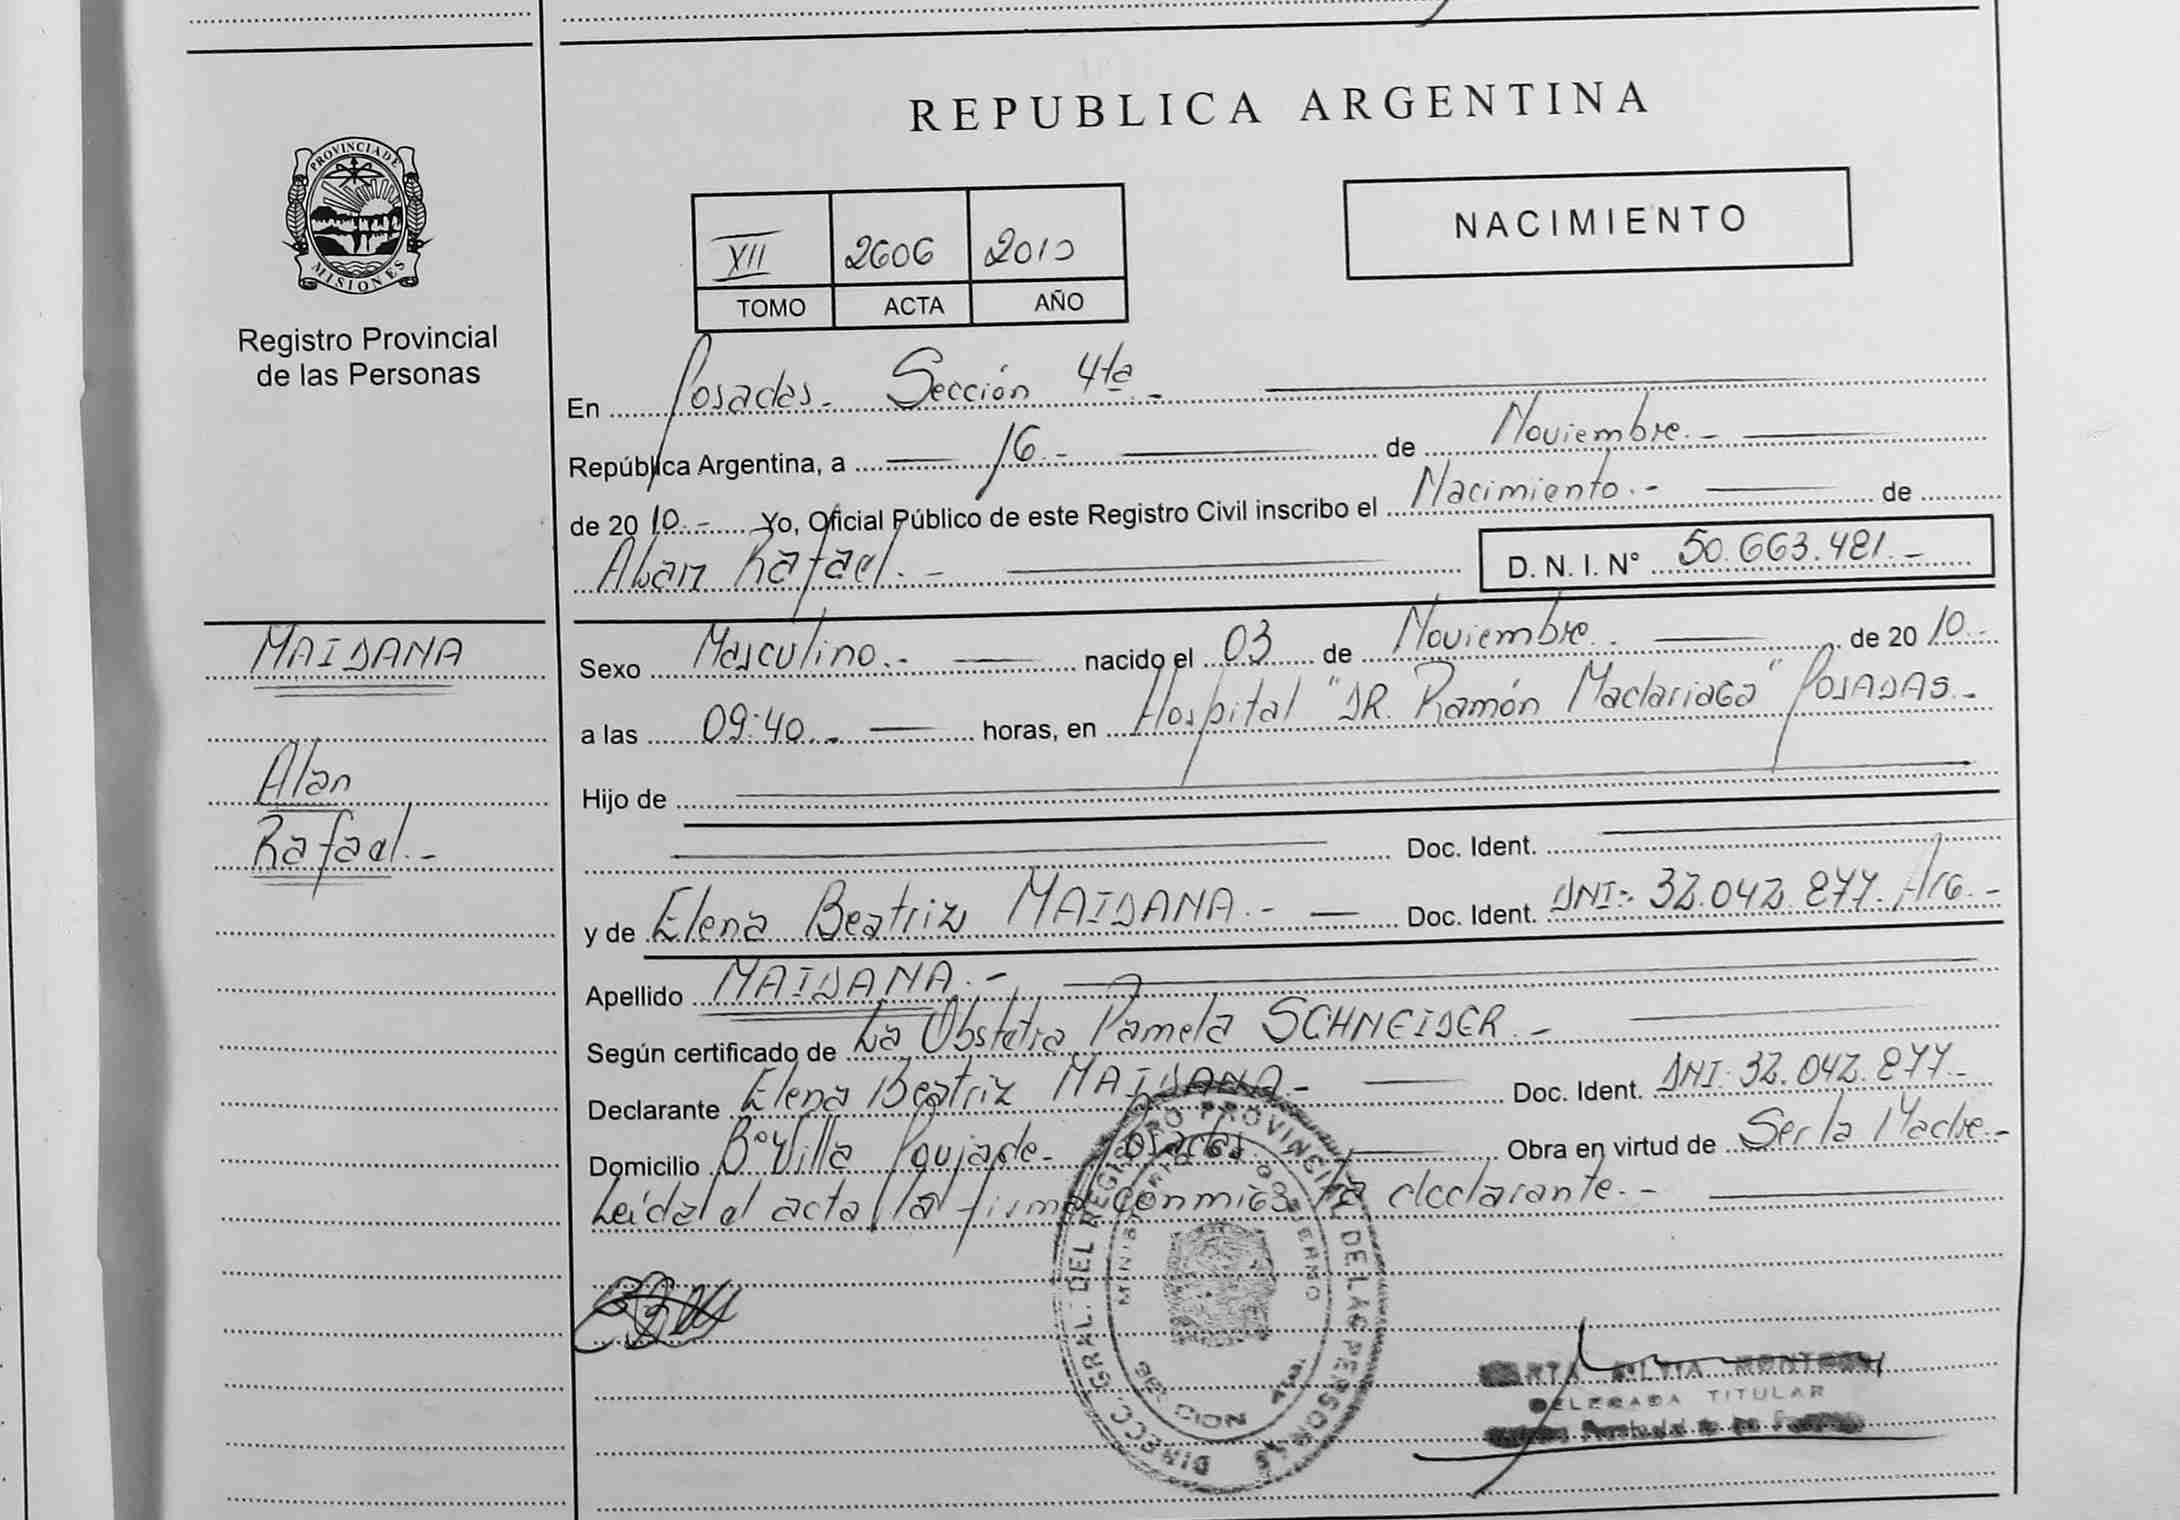 REPUBLICA ARGENTINA
PROVINCIA DE
MISIONES
Registro Provincial
de las Personas
NACIMIENTO
XII 2606 2010
TOMO ACTA AÑO
En Posadas.- Sección 4ta.-
República Argentina, a 16.- de Noviembre.-
de 20 10.- Yo, Oficial Público de este Registro Civil inscribo el Nacimiento.- de
Alan Rafael.- D. N. I. Nº 50.663.481.-
MAIDANA
Alan
Rafael.-
Sexo Masculino.- nacido el 03 de Noviembre. de 20 10.-
a las 09:40.- horas, en Hospital "DR. Ramón Madariaga" POSADAS.-
Hijo de
Doc. Ident.
y de Elena Beatriz MAIDANA.- Doc. Ident. DNI: 32.042.877. Arg.-
Apellido MAIDANA.-
Según certificado de La Obstetra Pamela SCHNEIDER.-
Declarante Elena Beatriz MAIDANA.- Doc. Ident. DNI: 32.042.877.-
Domicilio Bº Villa Poujade- Posadas. Obra en virtud de Ser la Madre.-
Leída el acta la firma conmigo la declarante.-
DIRECC. GRAL. DEL REGISTRO PROVINCIAL DE LAS PERSONAS
MINISTERIO DE GOBIERNO
SECCION 4ta.
SILVIA
DELEGADA TITULAR
Provincial de las